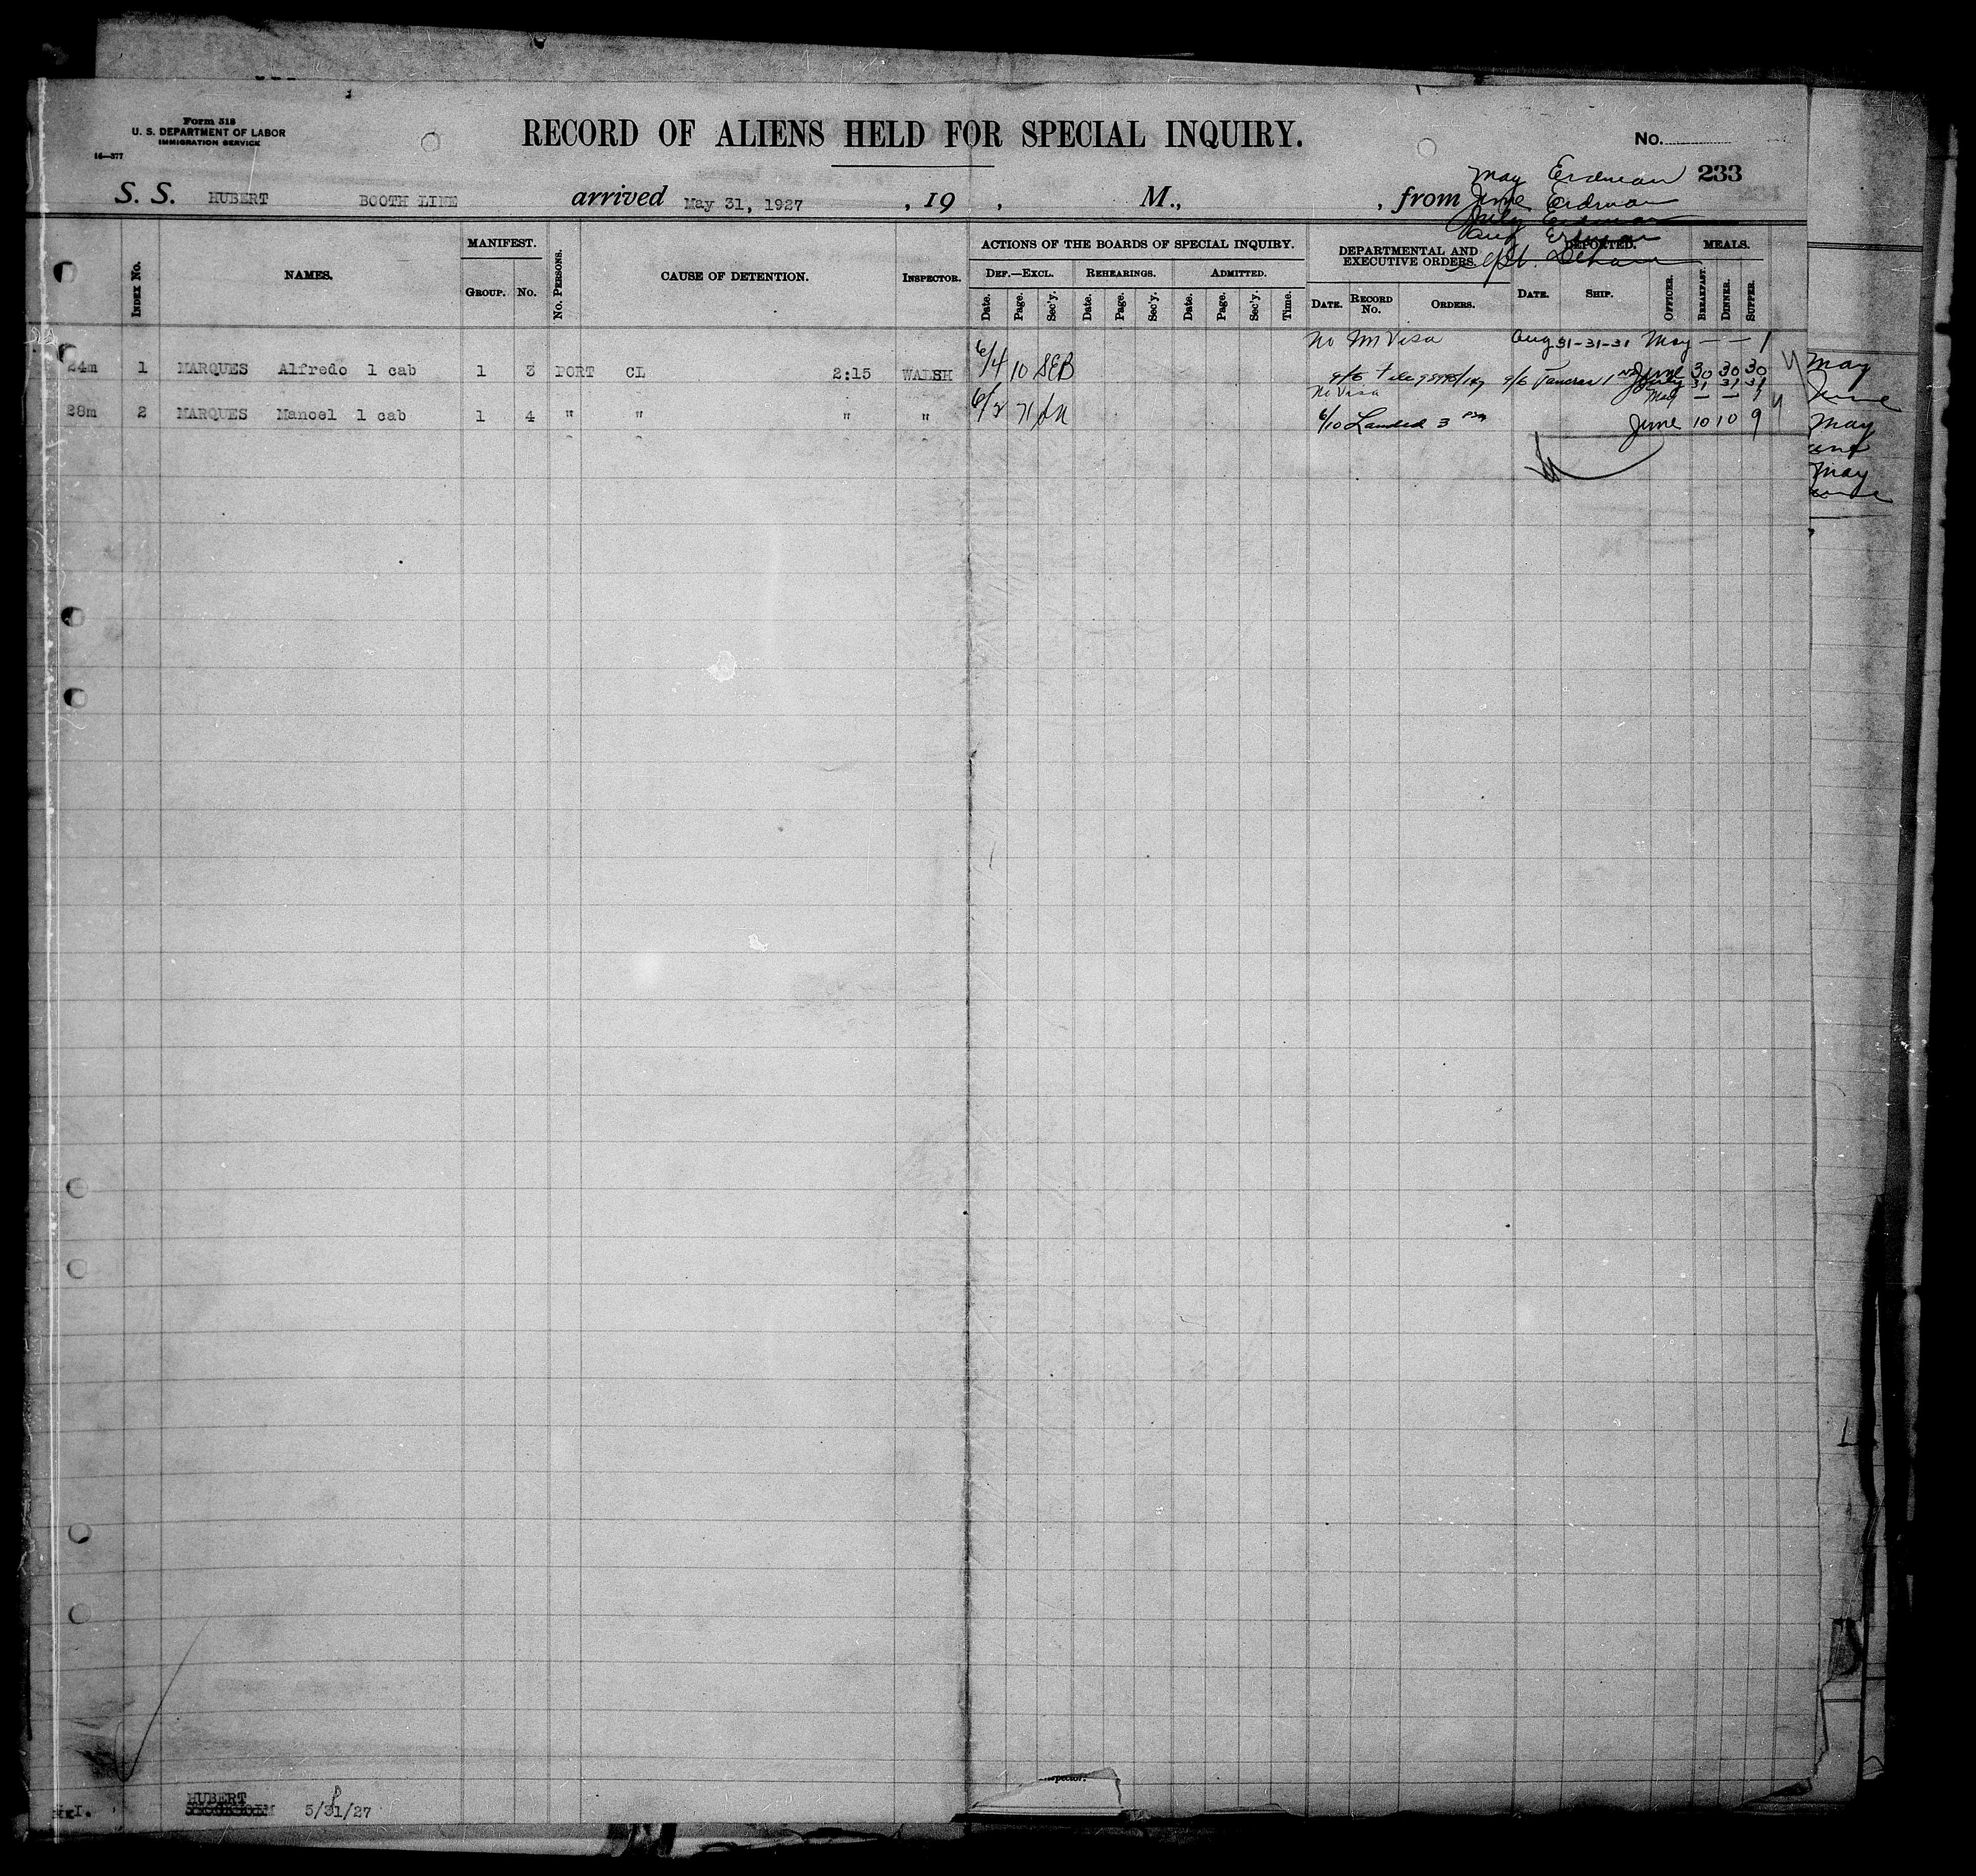 Form 518
U. S. DEPARTMENT OF LABOR
IMMIGRATION SERVICE
16—377
RECORD OF ALIENS HELD FOR SPECIAL INQUIRY.
No.
233
May Erdman
June Erdman
July Erdman
Aug Erdman
Sept.
S. S. HUBERT BOOTH LINE arrived May 31, 1927 , 19 , M., , from
INDEX No. NAMES. MANIFEST. GROUP. No. No. PERSONS. CAUSE OF DETENTION. INSPECTOR.
ACTIONS OF THE BOARDS OF SPECIAL INQUIRY.
DEF.—EXCL. REHEARINGS. ADMITTED.
Date. Page. Sec'y. Date. Page. Sec'y. Date. Page. Sec'y. Time.
DEPARTMENTAL AND EXECUTIVE ORDERS. DATE. RECORD No. ORDERS.
DEPORTED. DATE. SHIP. OFFICER.
MEALS. BREAKFAST. DINNER. SUPPER.
No Visa Aug 31-31-31 May — — 1
24m 1 MARQUES Alfredo 1 cab 1 3 PORT CL 2:15 WALSH 6/4 10 SEB 9/6 June 30 30 30
July 31 31 31
No Visa May — — 1
28m 2 MARQUES Manoel 1 cab 1 4 " " " " 6/2 71 6/10 Landed 3 June 10 10 9
May
June
May
June
May
June
Inspector.
HUBERT
5/31/27